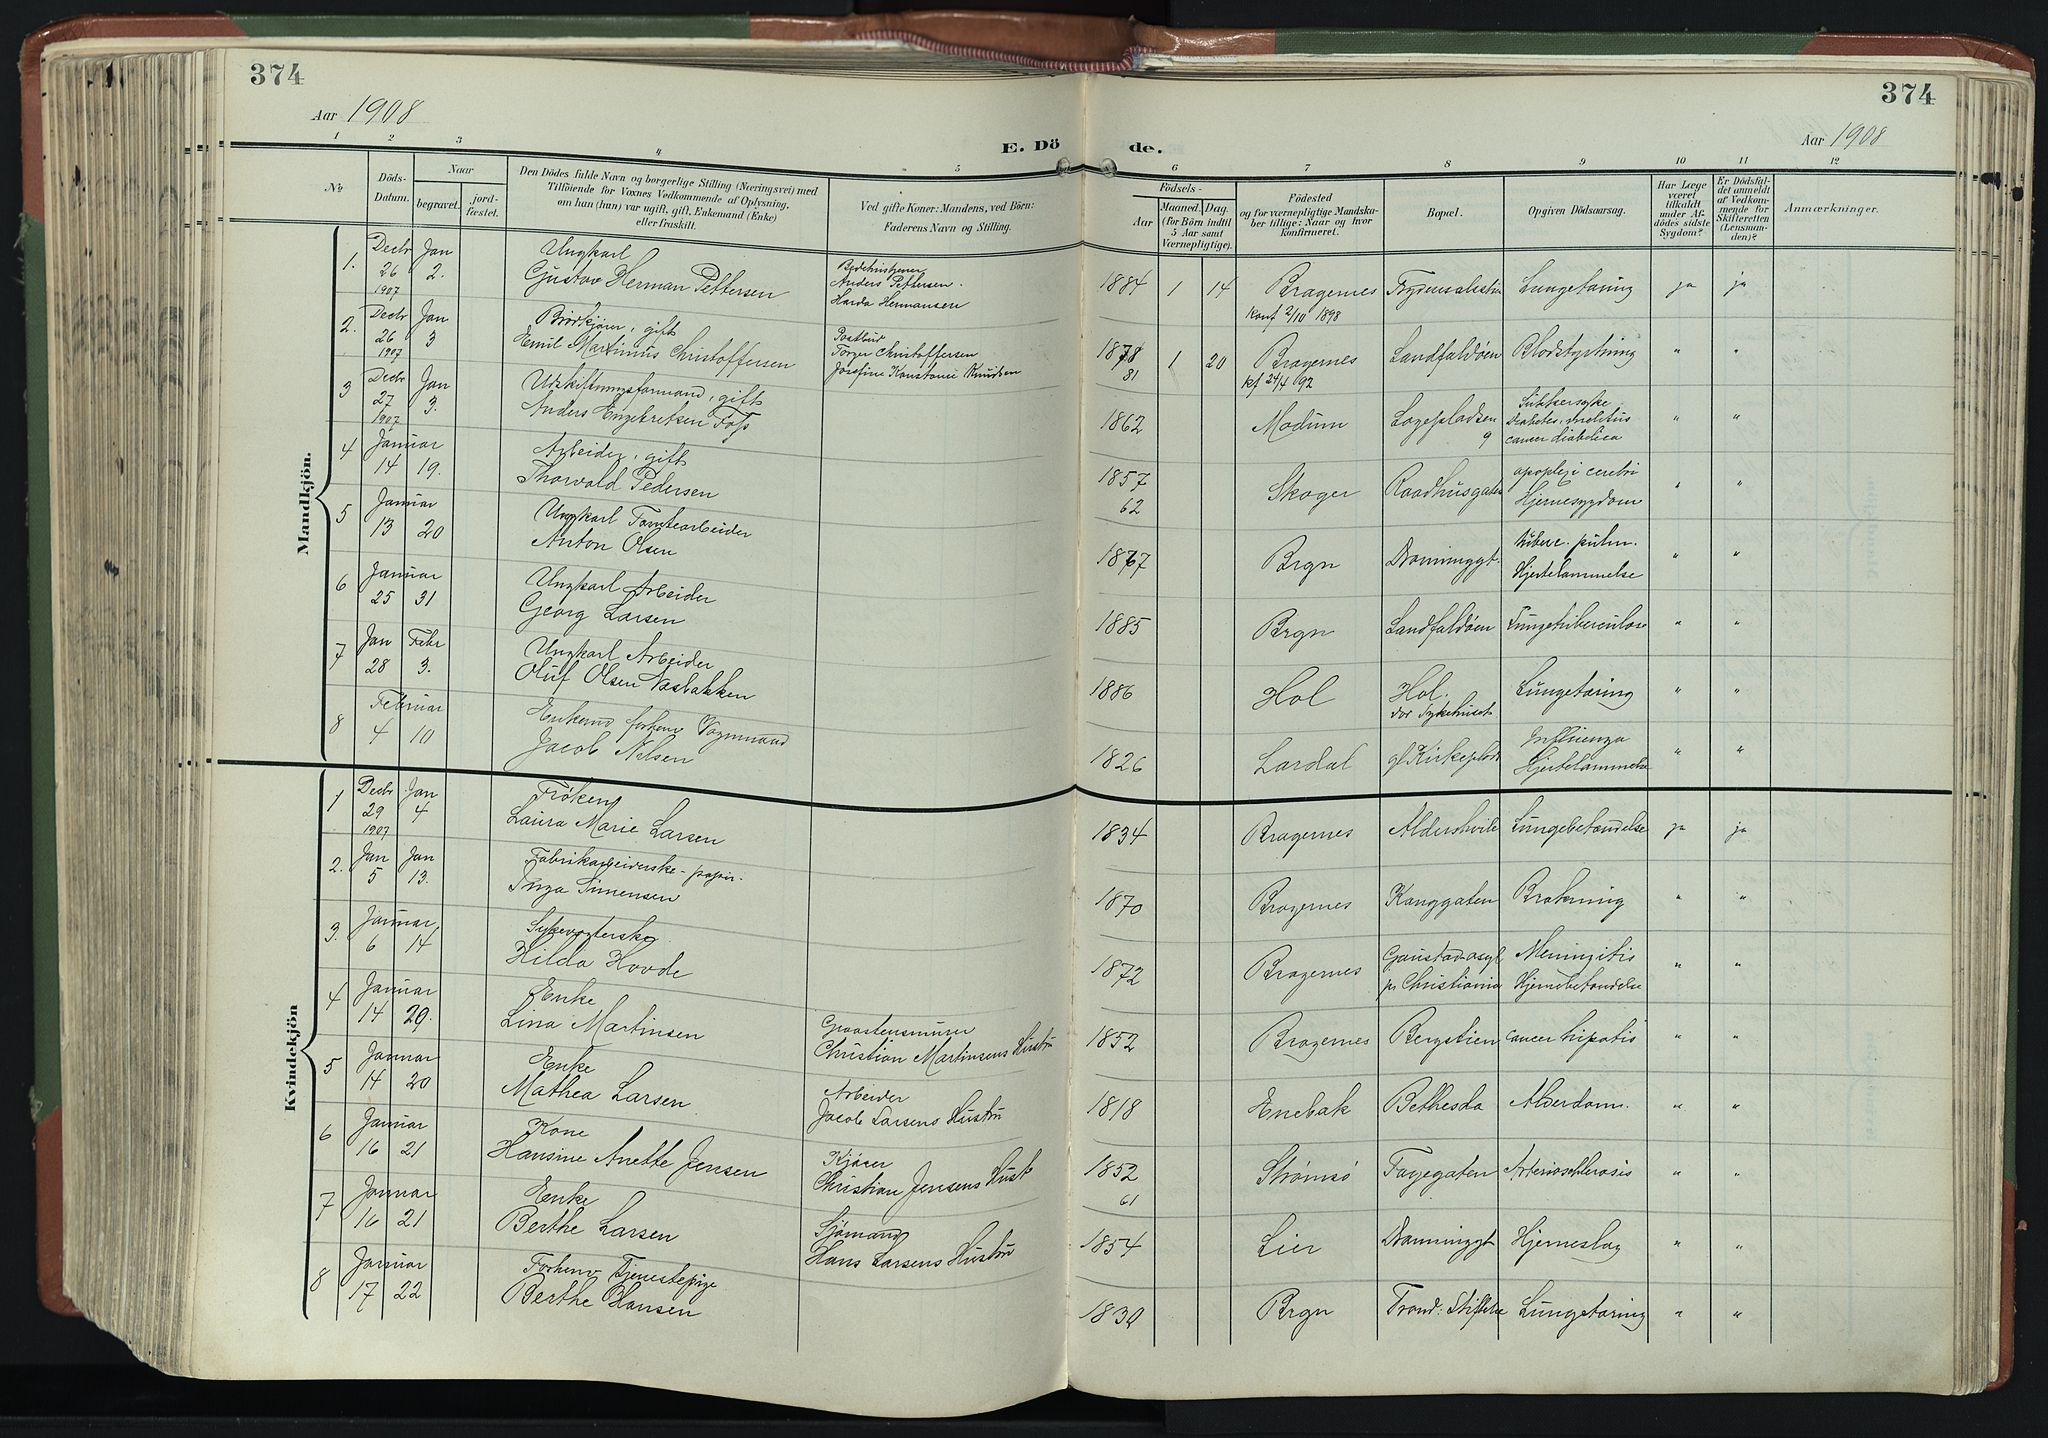 374
374
Aar 1908
Aar 1908
E. Dö
de.
1 2 3 4 5 6 7 8 9 10 11 12
№
Döds-
Datum.
Naar
begravet.
jord-
fæstet.
Den Dödes fulde Navn og borgerlige Stilling (Næringsvei) med
Tilföiende for Voxnes Vedkommende af Oplysning,
om han (hun) var ugift, gift, Enkemand (Enke)
eller fraskilt.
Ved gifte Koner: Mandens, ved Börn:
Faderens Navn og Stilling.
Födsels-
Aar
Maaned. Dag.
(for Börn indtil
5 Aar samt
Værnepligtige).
Födested
og for værnepligtige Mandska-
ber tillige: Naar og hvor
konfirmeret.
Bopæl.
Opgiven Dödsaarsag.
Har Læge
været
tilkaldt
under Af-
dödes sidste
Sygdom?
Er Dödsfal-
det anmeldt
af Vedkom-
mende for
Skifteretten
(Lensman-
den)?
Anmærkninger.
Mandkjön.
1. Decbr 26 1907 Jan 2.
Ungkarl
Gustav Herman Pettersen
Anders Pettersen
Harda Hermansen
1884 1 14 Bragernes
Konf 2/10 1898
Lungetæring ja ja
2. Decbr 26 1907 Jan 3
Brødkjører, gift
Emil Martinius Christoffersen
Postbud
Torger Christoffersen
Josefine Konstanse Knudsen
1878 1 20 Bragernes Landfaldøen Blodstyrtning " "
81
kf 24/4 92
3 Decbr 27 1907 Jan 3.
Udskiftningsformand, gift
Anders Engebretsen Foss
1862 Modum Lagepladsen
9
Sukkersyke
Diabetes mellitus
cancer diabetica " "
4 Januar 14 19.
Arbeider, gift
Thorvald Pedersen
1857
62
Skoger Raadhusgaten
apoplexi cerebri
Hjernesygdom " "
5 Januar 13 20
Ungkarl Tomtearbeider
Anton Olsen
1867 Brgn Dronninggt.
tuberc. pulm.
Hjertelammelse " "
6 Januar 25 31
Ungkarl Arbeider
Georg Larsen
1885 Brgn Landfaldøen Lungetuberculose " "
7 Jan 28 Febr 3.
Ungkarl Arbeider
Oluf Olsen Næsbakken
1886 Hol Hol.
dør Sykehuset
Lungetæring " "
8 Februar 4 10
Enkemd forhenv Vognmand
Jacob Nilsen
1826 Lardal gl Kirkeplads
Influenza
Hjertelammelse " "
Kvindekjön
1 Decbr 29 1907 Jan 4
Frøken
Laura Marie Larsen
1834 Bragernes Aldershvile Lungebetændelse ja ja
2. Jan 5 Jan 13.
Fabrikarbeiderske - papir.
Inga Simensen
1870 Bragernes Konggaten Brækning " "
3. Januar 6 14
Sykevogterske
Hilda Hovde
1872 Bragernes Gaustad asyl
pr Christiania
Meningitis
Hjernebetændelse " "
4 Januar 14 29.
Enke
Lina Martinsen
Graastensmurer
Christian Martinsens Hustru
1852 Bragernes Bergstien cancer hipatis " "
5 Januar 14 20
Enke
Mathea Larsen
Arbeider
Jacob Larsens Hustru
1818 Enebak Bethesda Alderdom. " "
6 Januar 16 21
Kone
Hansine Anette Jensen
Kjører
Christian Jensens Hust
1852
61
Strømsø Fagegaten Arteriosclerosis " "
7 Januar 16 21
Enke
Berthe Larsen
Sjømand
Hans Larsens Hustru
1854 Lier Dronninggt Hjerneslag " "
8 Januar 17 22
Forhenv Tjenestepige
Berthe Hansen
1830 Brgn Trond: Stiftelse Lungetæring " "